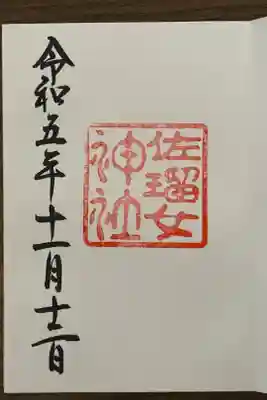 佐瑠女
神社
令和五年十一月十二日